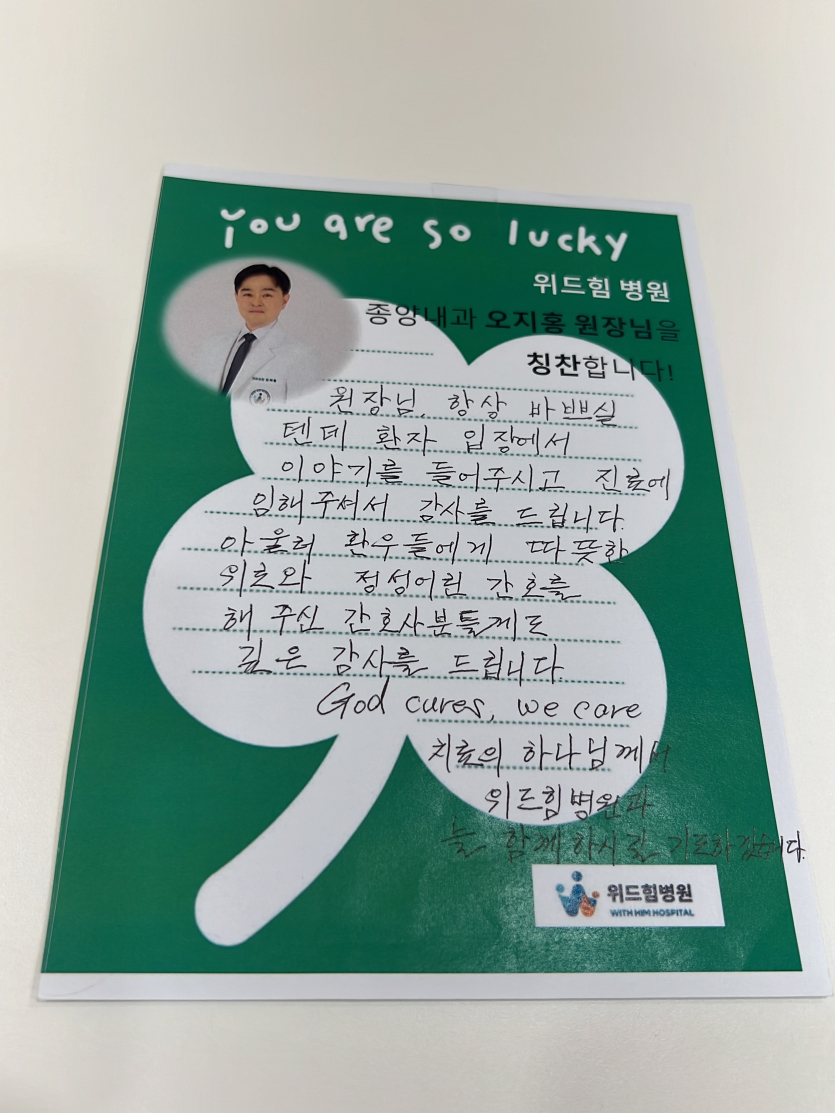 you are so lucky
위드힘 병원
종양내과 오지홍 원장님을
칭찬합니다!
원장님, 항상 바쁘실
텐데 환자 입장에서
이야기를 들어주시고 진료에
임해주셔서 감사를 드립니다.
아울러 환우들에게 따뜻한
위로와 정성어린 간호를
해 주신 간호사분들께도
깊은 감사를 드립니다.
God cures, we care
치료의 하나님께서
위드힘병원과
늘 함께하시길 기도하겠습니다.
위드힘병원
WITH HIM HOSPITAL